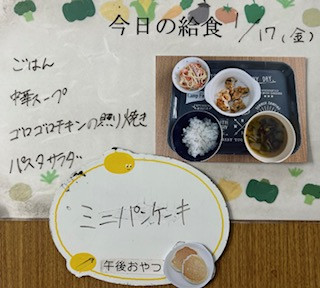 今日の給食 1/17(金)
ごはん
中華スープ
ゴロゴロチキンの照り焼き
パスタサラダ
ミニパンケーキ
午後おやつ